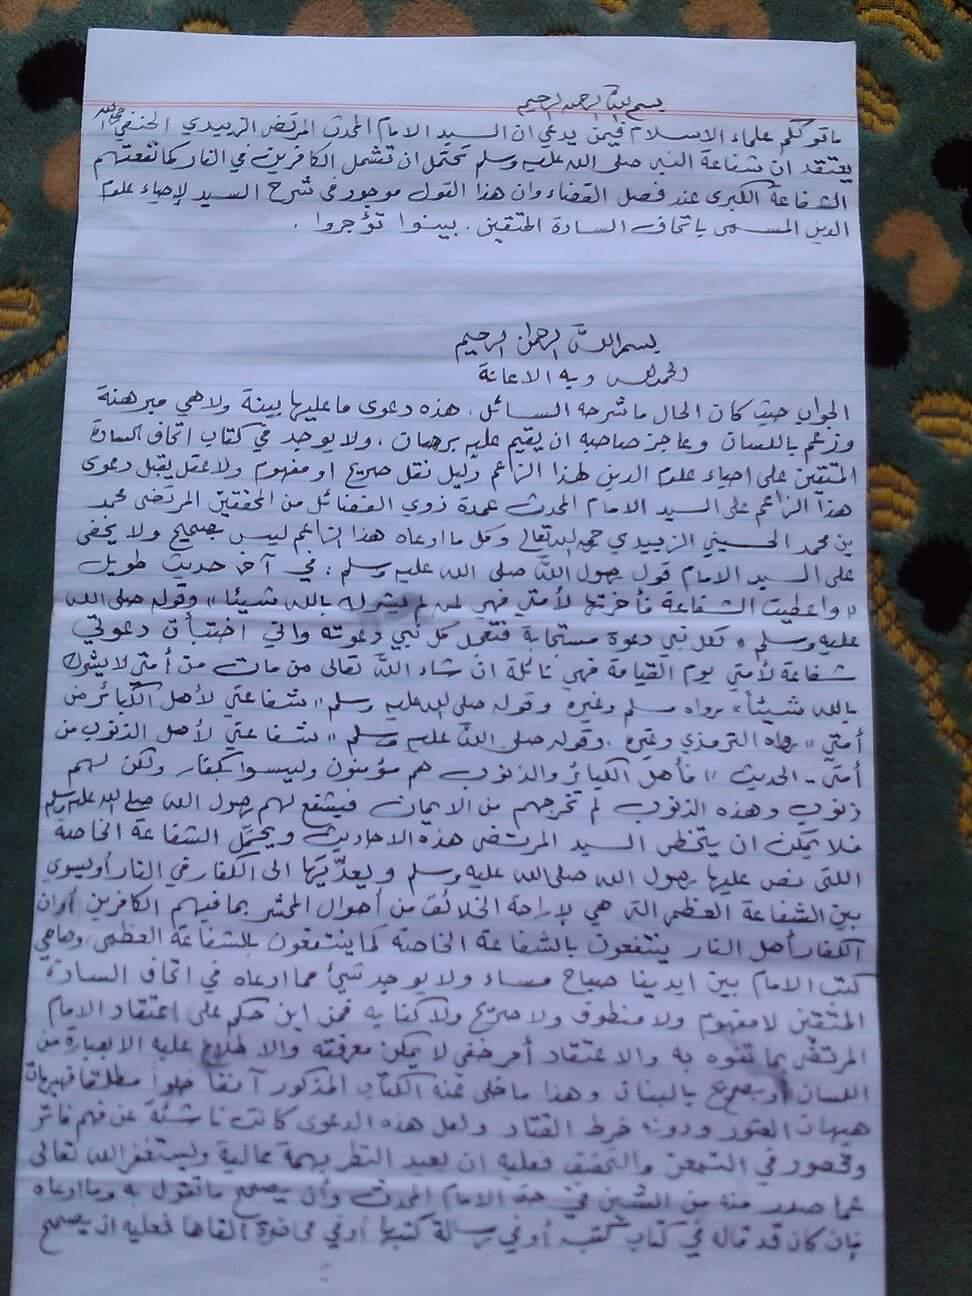 بسم الله الرحمن الرحيم
ما قولكم علماء الاسلام فيمن يدعي ان السيد الامام المحدث المرتضى الزبيدي الحنفي رحمه الله
يعتقد ان شفاعة النبي صلى الله عليه وسلم تحتمل ان تشمل الكافرين في النار كما تنفعهم
الشفاعة الكبرى عند فصل القضاء وان هذا القول موجود في شرح السيد لإحياء علوم
الدين المسمى باتحاف السادة المتقين. بينوا تؤجروا.
بسم اللّٰه الرحمن الرحيم
الحمد لله وبه الاعانة
الجواب حيث كان الحال ما شرحه السائل. هذه دعوى ما عليها بينة ولا هي مبرهنة
وزعم باللسان وعاجز صاحبه ان يقيم عليه برهان. ولا يوجد في كتاب اتحاف السادة
المتقين على احياء علوم الدين لهذا الزاعم دليل نقل صريح او مفهوم ولا عقل يقبل دعوى
هذا الزاعم على السيد الامام المحدث عمدة ذوي الفضائل من المحققين المرتضى محمد
بن محمد الحسيني الزبيدي رحمه الله تعالى وكل ما ادعاه هذا الزاعم ليس بصحيح ولا يخفى
على السيد الامام قول رسول اللّٰه صلى الله عليه وسلم: في آخر حديث طويل
«واعطيت الشفاعة فأخرتها لأمتي فهي لمن لم يشرك بالله شيئا» وقوله صلى الله
عليه وسلم «لكل نبي دعوة مستجابة فتعجل كل نبي دعوته واني اختبأت دعوتي
شفاعة لأمتي يوم القيامة فهي نائلة ان شاء اللّٰه تعالى من مات من أمتي لا يشرك
بالله شيئاً» رواه مسلم وغيره وقوله صلى الله عليه وسلم «شفاعتي لأهل الكبائر من
أمتي» رواه الترمذي وغيره. وقوله صلى اللّٰه عليه وسلم «شفاعتي لأهل الذنوب من
أمتي - الحديث» فأهل الكبائر والذنوب هم مؤمنون وليسوا كفار ولكن لهم
ذنوب وهذه الذنوب لم تخرجهم من الايمان فيشفع لهم رسول الله صلى الله عليه وسلم
فلا يمكن ان يتخطى السيد المرتضى هذه الاحاديث ويحتمل الشفاعة الخاصة
اللتي نص عليها رسول الله صلى الله عليه وسلم ويعدّيَها الى الكفار في النار أو يسوي
بين الشفاعة العظمى التي هي لإراحة الخلائق من أحوال المحشر بما فيهم الكافرين أو ان
الكفار أهل النار ينتفعون بالشفاعة الخاصة كما ينتفعون بالشفاعة العظمى وها هي
كتب الامام بين ايدينا صباح مساء ولا يوجد شيئ مما ادعاه في اتحاف السادة
المتقين لا مفهوم ولا منطوق ولا صريح ولا كناية فمن اين حكم على اعتقاد الامام
المرتضى بما تفوه به والاعتقاد أمر خفي لا يمكن معرفته والاطلاع عليه الا بعبارة من
اللسان أو بصريح بالبنان وهذا ما خلى عنه الكتاب المذكور آنفا خلوا مطلقا فهيهات
هيهات العثور ودونه خرط القتاد ولعل هذه الدعوى كانت ناشئة عن فهم فاتر
وقصور في التمعن والتحقيق فعليه ان يعيد النظر بهمة عالية وليستغفر الله تعالى
عما صدر منه من الشين في حق الامام المحدث وأن يصحح ما تقول به وما ادعاه
فإن كان قد قاله في كتاب كتبه أو في رسالة كتبها أو في محاضرة القاها فعليه ان يصحح